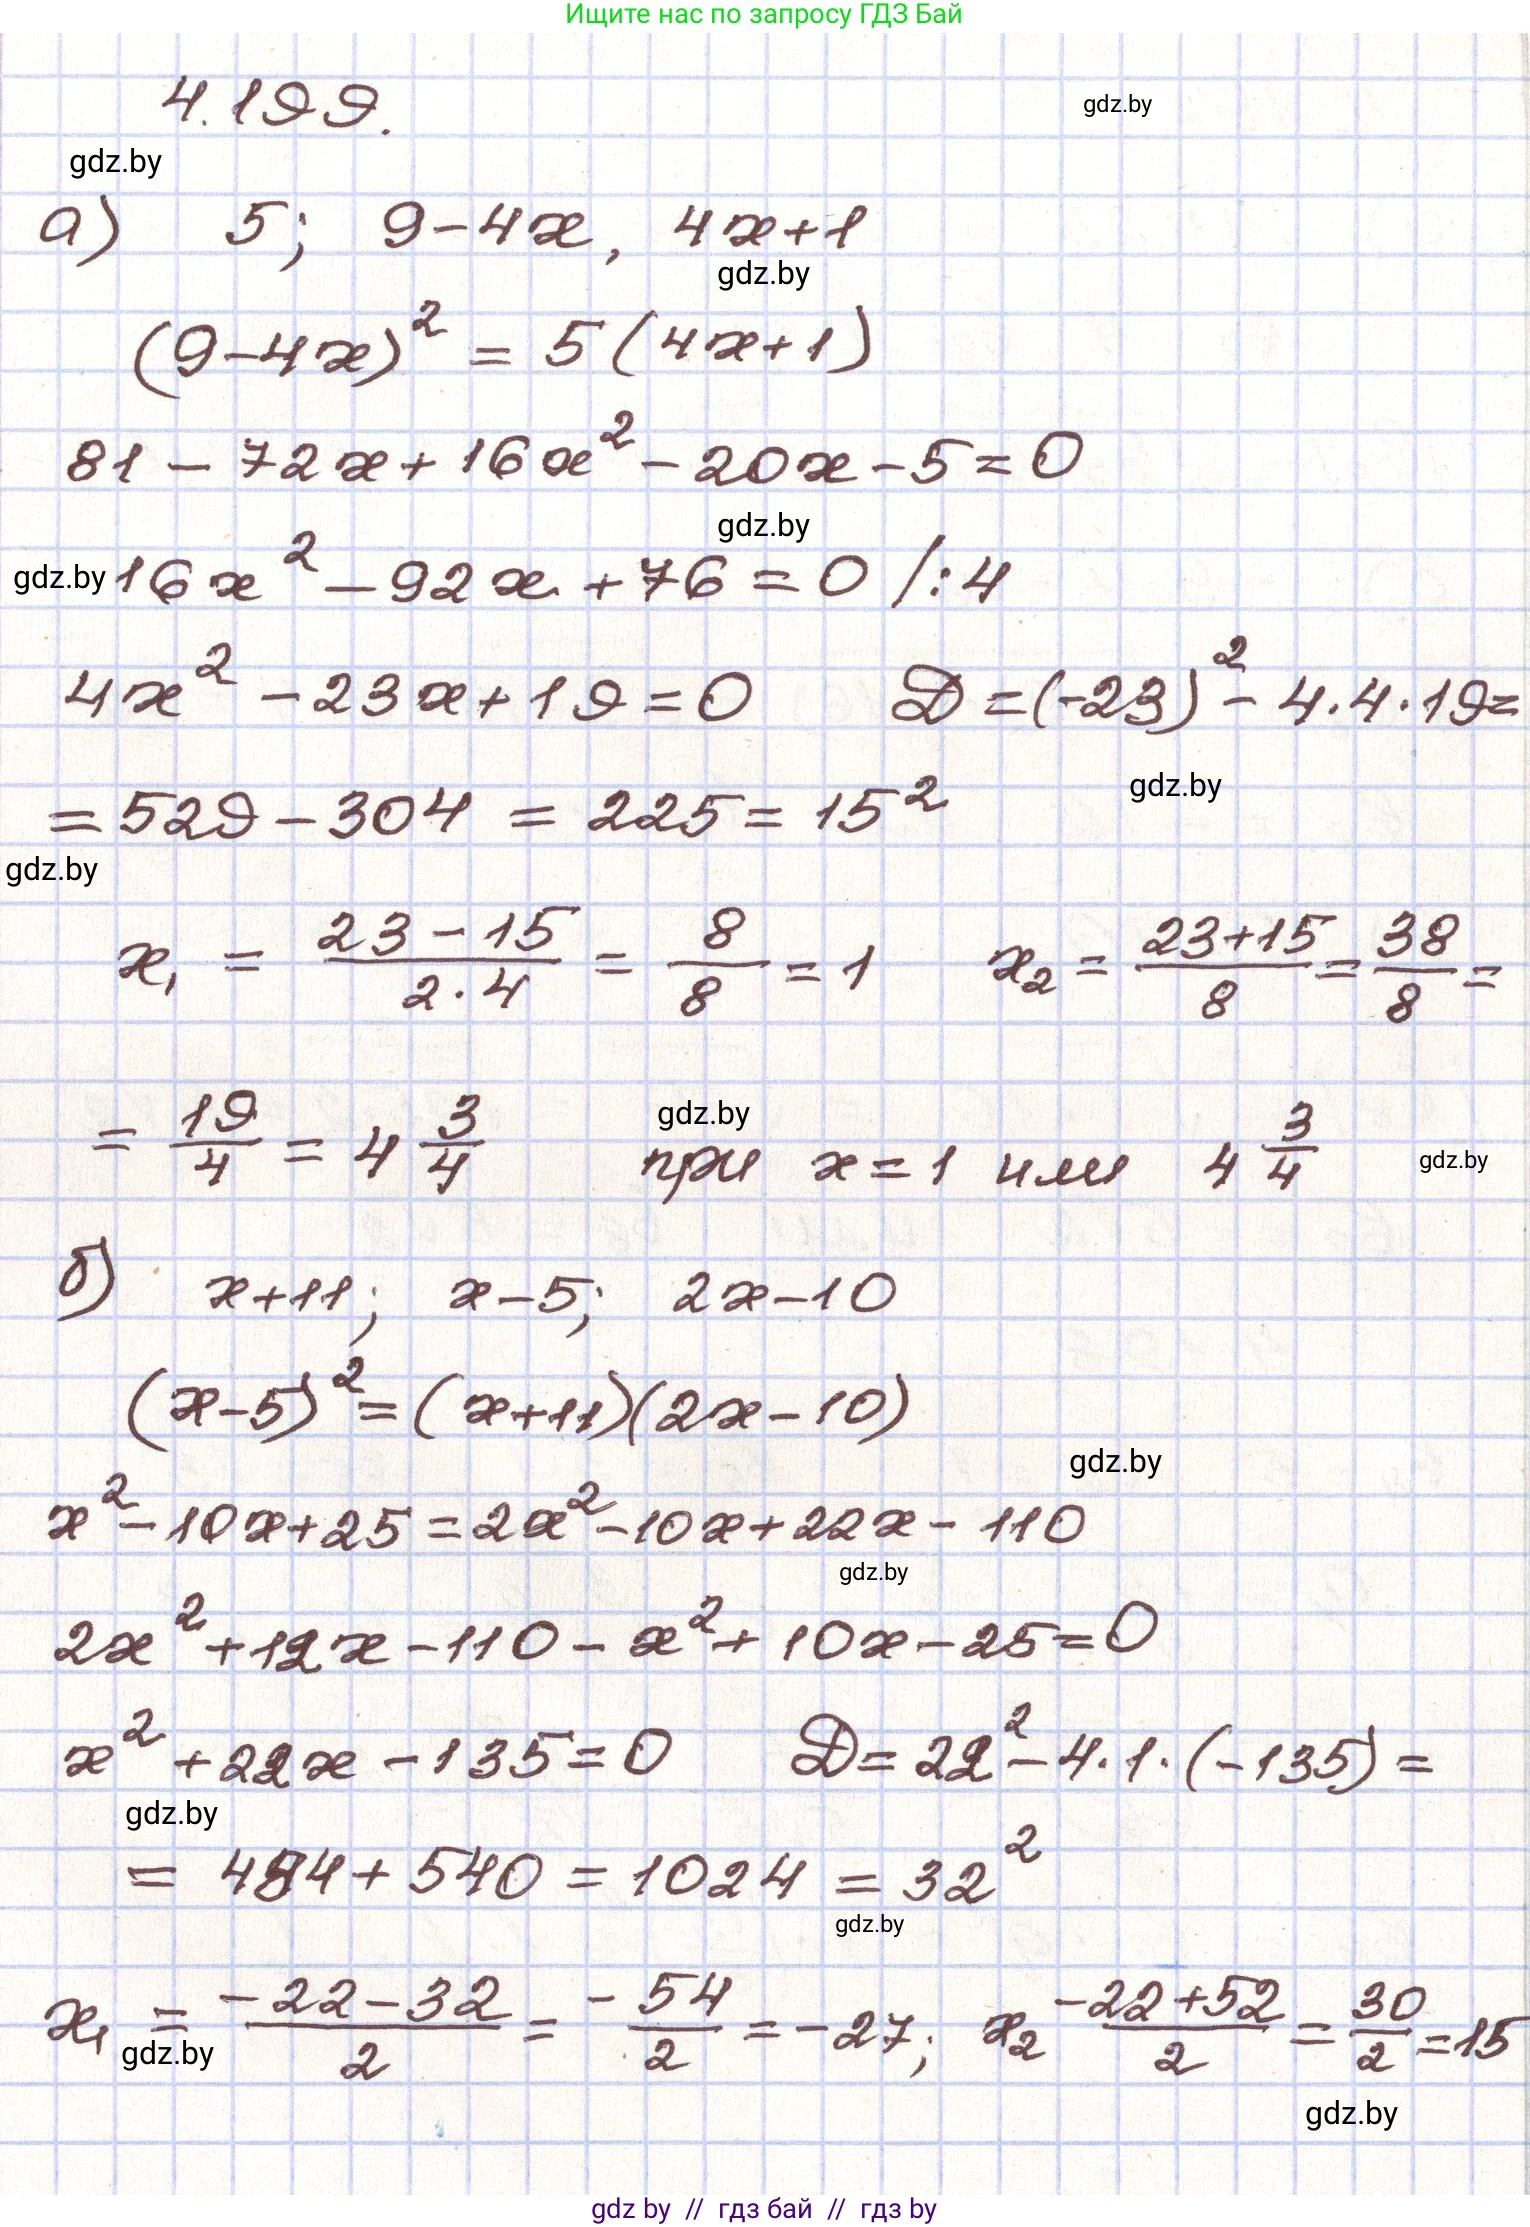 Ищите нас по запросу ГДЗ Бай
4.199.
gdz.by
gdz.by
а) 5; 9-4x, 4x+1
gdz.by
(9-4x)² = 5(4x+1)
81 - 72x + 16x² - 20x - 5 = 0
gdz.by
gdz.by
16x² - 92x + 76 = 0 /:4
4x² - 23x + 19 = 0 D = (-23)² - 4·4·19 =
gdz.by
= 529 - 304 = 225 = 15²
gdz.by
x₁ = (23-15)/(2·4) = 8/8 = 1 x₂ = (23+15)/8 = 38/8 =
gdz.by
= 19/4 = 4 3/4 при x = 1 или 4 3/4
gdz.by
б) x+11; x-5; 2x-10
(x-5)² = (x+11)(2x-10)
gdz.by
x² - 10x + 25 = 2x² - 10x + 22x - 110
gdz.by
2x² + 12x - 110 - x² + 10x - 25 = 0
x² + 22x - 135 = 0 D = 22² - 4·1·(-135) =
gdz.by
= 484 + 540 = 1024 = 32²
gdz.by
x₁ = (-22-32)/2 = -54/2 = -27; x₂ (-22+52)/2 = 30/2 = 15
gdz.by
gdz.by
gdz by // гдз бай // гдз by